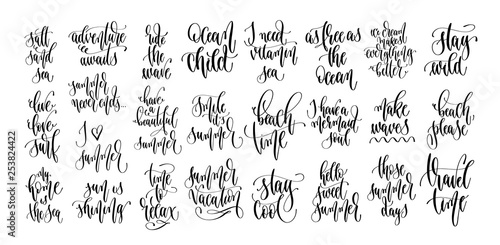 salt
sand
sea
adventure
awaits
ride
the
wave
Ocean
child
I need
vitamin
sea
as free as
the
Ocean
ice cream
makes
everything
better
stay
wild
live
love
surf
summer
never ends...
I
summer
have a
beautiful
summer
Smile
it's
summer
beach
time
I have a
mermaid
soul
make
waves
beach
please
my
home
is
the sea
sun is
shining
time
to
relax
summer
vacation
stay
cool
hello
sweet
summer
those
summer
days
travel
time
Adobe Stock | #253824422